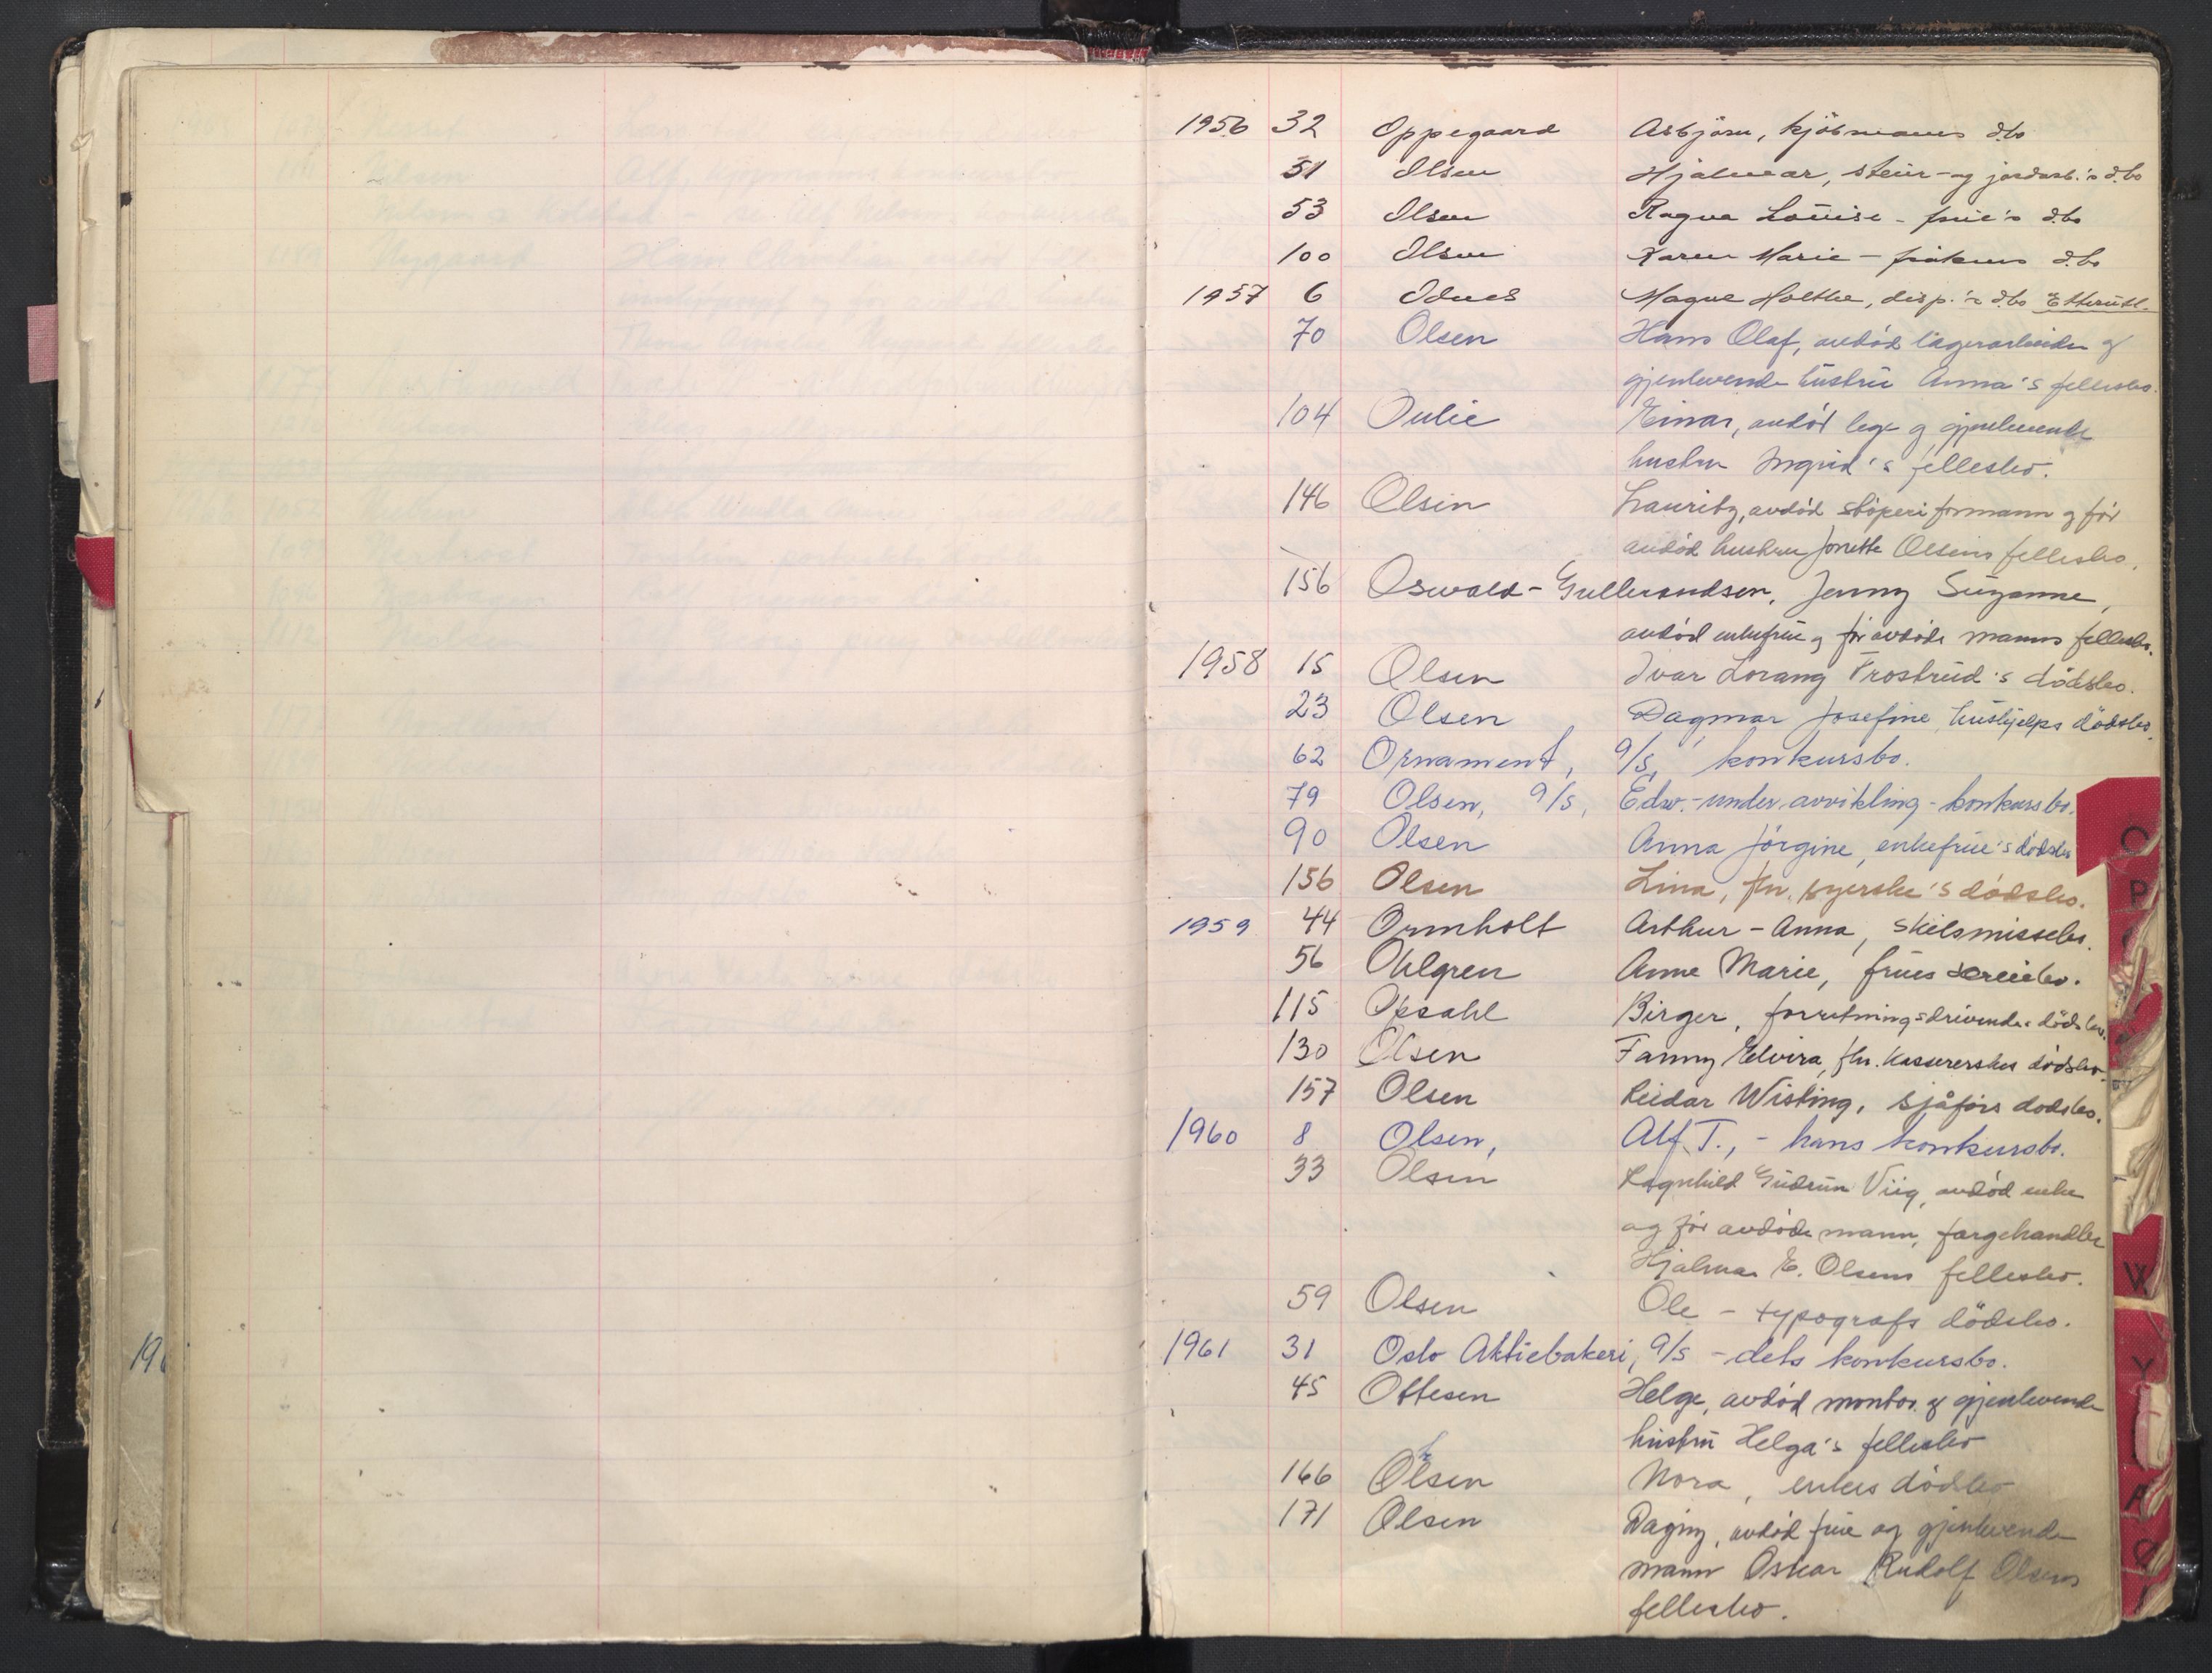 1956 32 Oppegaard Asbjörn, kjöbmanns d.bo
51 Olsen Hjalmar, stein- og jordarb.'s d.bo
53 Olsen Ragna Louise - frue's d.bo
100 Olsen Karen Marie - frökens d.bo
1957 6 Odnes Magne Holthe, disp.'s d.bo Etterutl.
70 Olsen Hans Olaf, avdöd lagerarbeider og
gjenlevende hustru Anna's fellesbo.
104 Oulie Einar, avdöd lege og gjenlevende
hustru Ingrid's fellesbo.
146 Olsen Lauritz, avdöd stöperiformann og för
avdöd hustru Jonette Olsens fellesbo.
156 Oswald-Gulbrandsen, Jenny Suzanne,
avdöd enkefrue og för avdöde manns fellesbo.
1958 15 Olsen Ivar Lorang Frostrud's dödsbo.
23 Olsen Dagmar Josefine, hushjelps dödsbo.
62 Ornament, a/s, konkursbo.
79 Olsen, a/s, Edw. - under avvikling - konkursbo.
90 Olsen Anna Jörgine, enkefrue's dödsbo
156 Olsen Lina, fhv. syerske's dödsbo.
1959 44 Ormholt Arthur - Anna, skilsmissebo.
56 Ohlgren Anne Marie, frues
115 Opsahl Birger, forretningsdrivendes dödsbo.
130 Olsen Fanny Elvira, fhv. kassererskes dödsbo.
157 Olsen Reidar Wisting, sjåförs dödsbo.
1960 8 Olsen, Alf T., - hans konkursbo.
33 Olsen Ragnhild Gudrun Viig, avdöd enke
og för avdöde mann, fargehandler
Hjalmar E. Olsens fellesbo.
59 Olsen Ole - typografs dödsbo.
1961 31 Oslo Aktiebakeri, a/s - dets konkursbo.
45 Ottesen Helge, avdöd montör og gjenlevende
hustru Helga's fellesbo
166 Olsen Nora, enkes dödsbo
171 Olsen Dagny, avdöd frue og gjenlevende
mann Oskar Rudolf Olsens
fellesbo.
196
O
P
W
Y